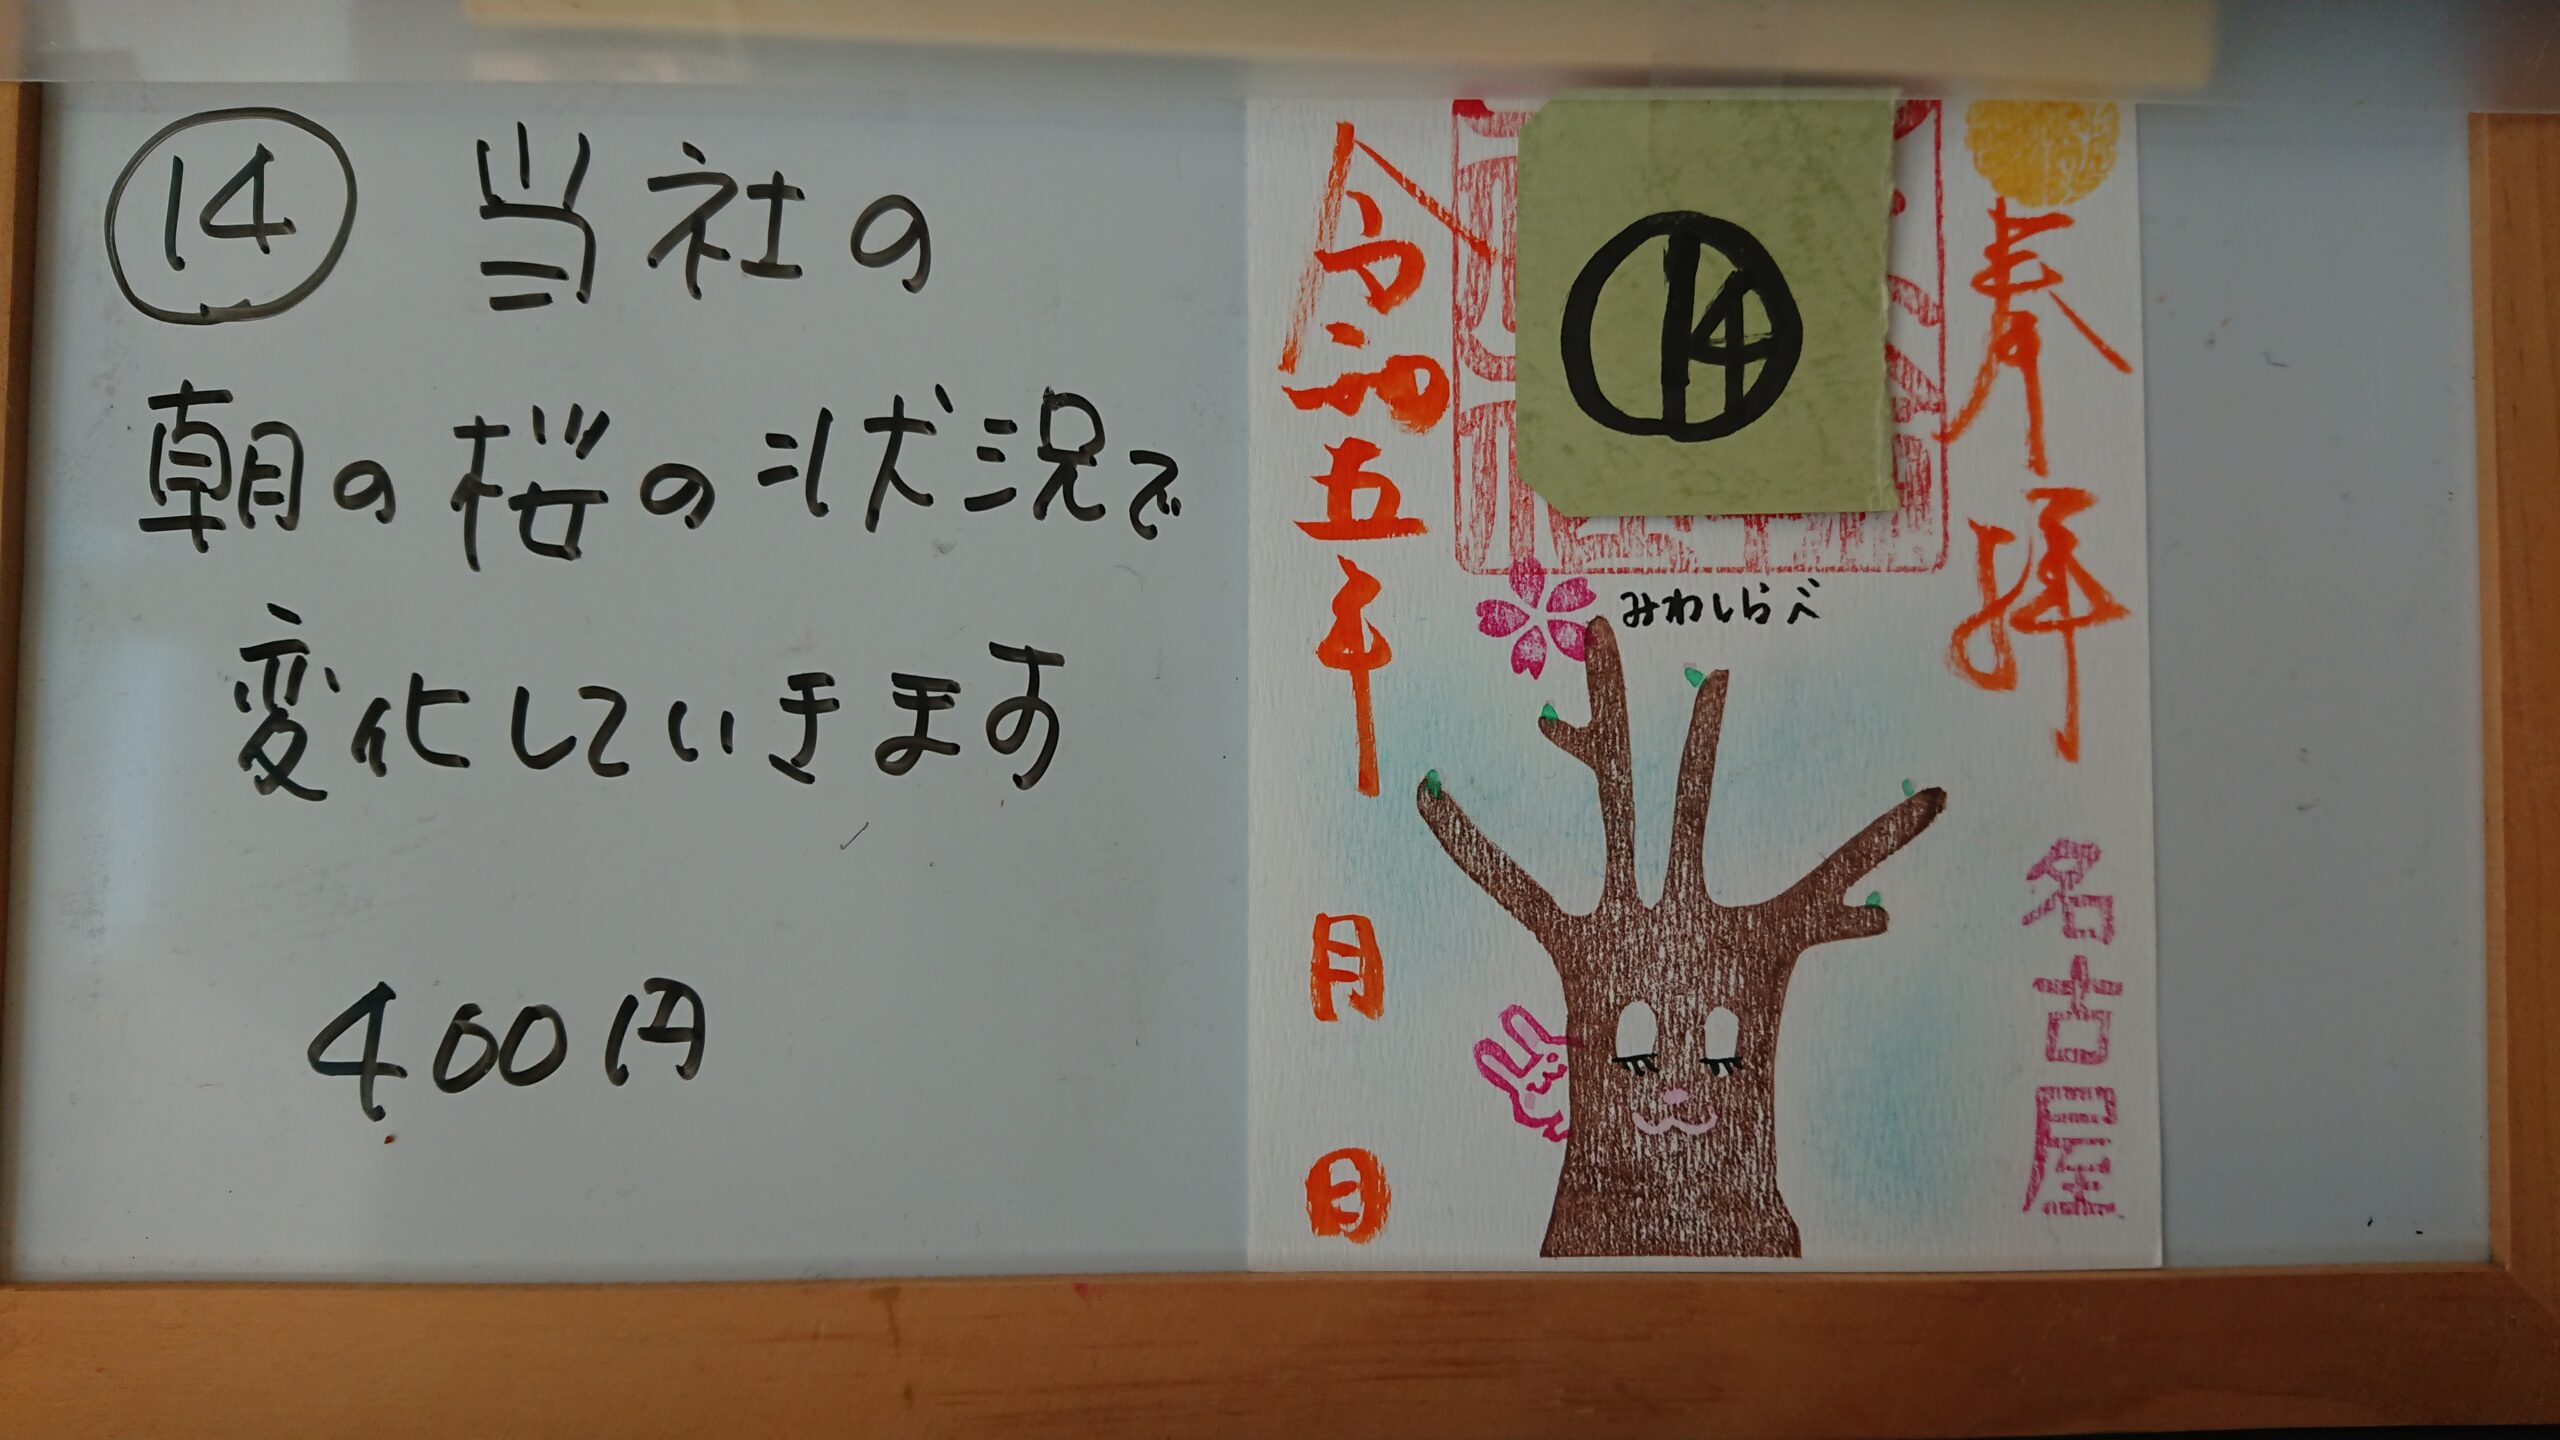 ⑭ 当社の
朝の桜の状況で
変化していきます
400円
奉拝
名古屋
⑭
みわしらべ
令和五年 月 日